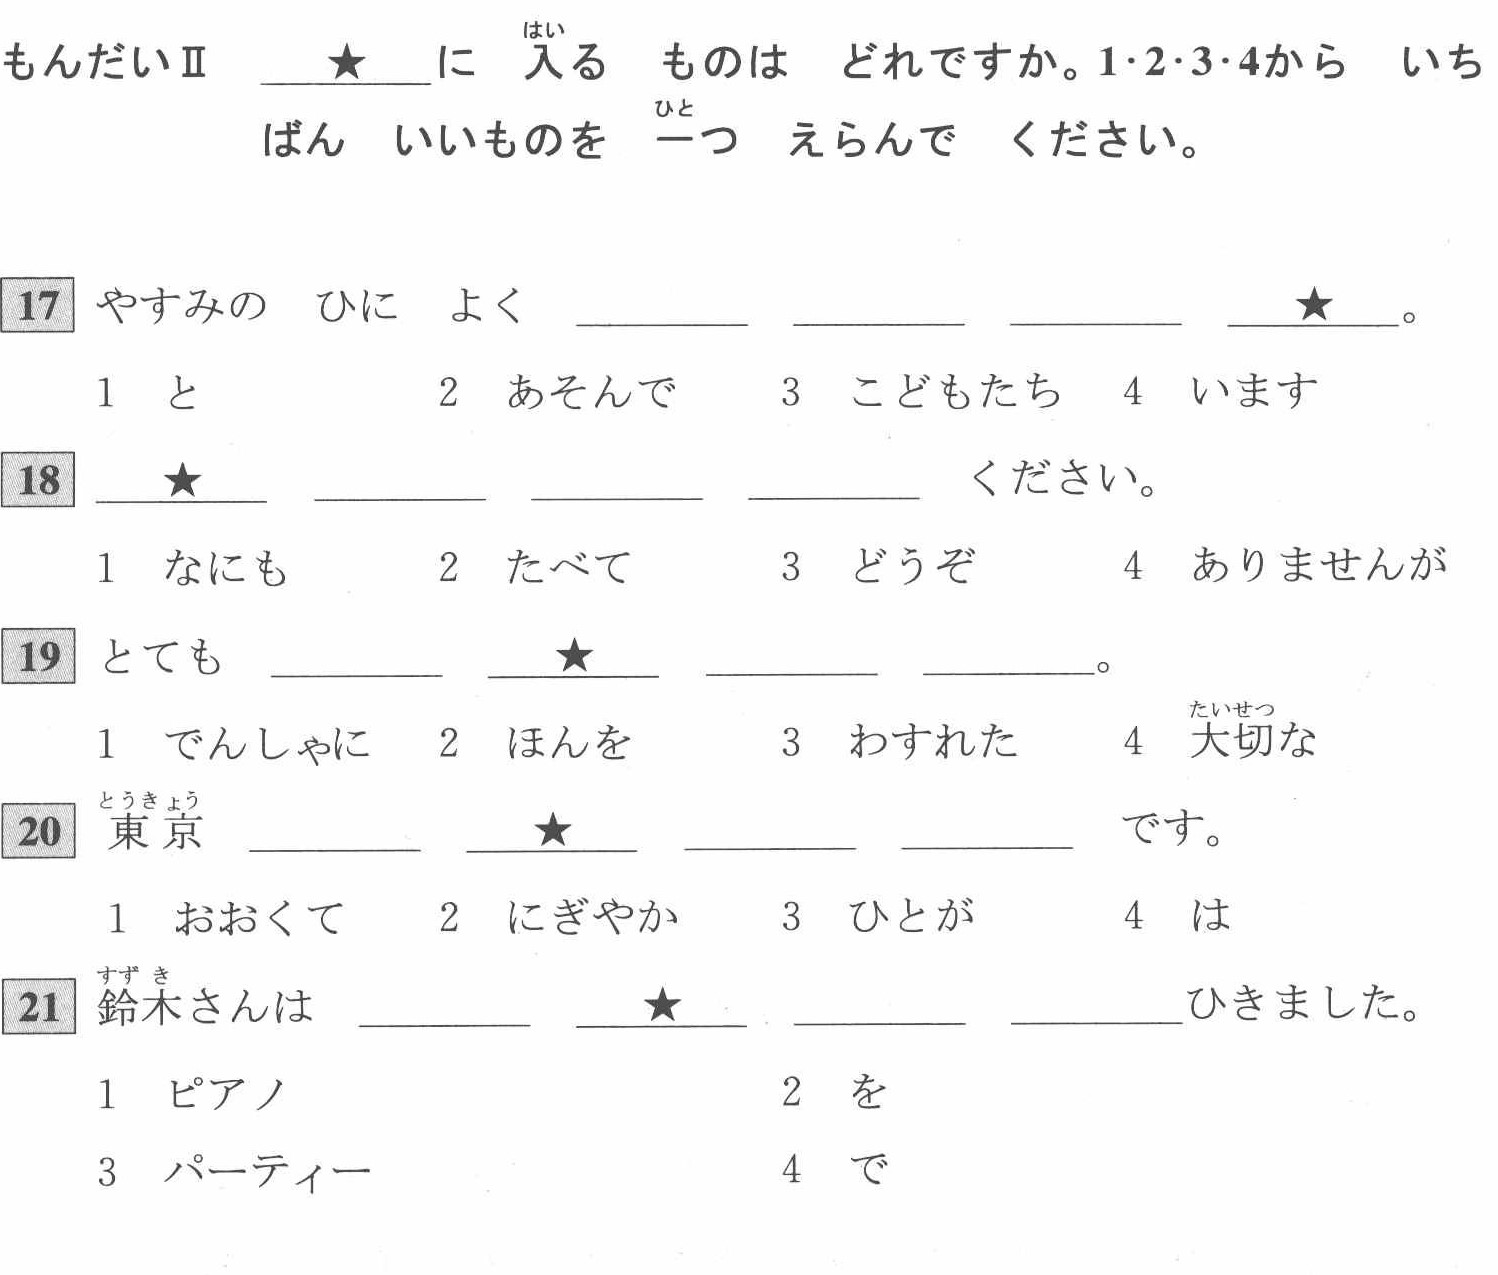 もんだいⅡ　＿＿★＿＿に　入る　ものは　どれですか。1・2・3・4から　いち
ばん　いいものを　一つ　えらんで　ください。
17 やすみの　ひに　よく　＿＿＿＿　＿＿＿＿　＿＿＿＿　＿＿★＿＿。
1　と　2　あそんで　3　こどもたち　4　います
18 ＿＿★＿＿　＿＿＿＿　＿＿＿＿　＿＿＿＿　ください。
1　なにも　2　たべて　3　どうぞ　4　ありませんが
19 とても　＿＿＿＿　＿＿★＿＿　＿＿＿＿　＿＿＿＿。
1　でんしゃに　2　ほんを　3　わすれた　4　大切な
20 東京　＿＿＿＿　＿＿★＿＿　＿＿＿＿　＿＿＿＿　です。
1　おおくて　2　にぎやか　3　ひとが　4　は
21 鈴木さんは　＿＿＿＿　＿＿★＿＿　＿＿＿＿　＿＿＿＿ひきました。
1　ピアノ　2　を
3　パーティー　4　で